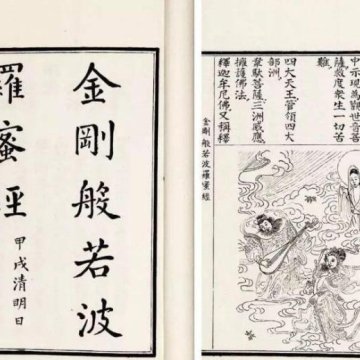 金剛般若波
羅蜜經
甲戌清明日
中示現為世音菩
薩救度衆生一切苦
難
四大天王管領四大
部洲
韋馱菩薩三洲感應
擁護佛法
釋迦牟尼佛又稱釋
金剛般若波羅蜜經